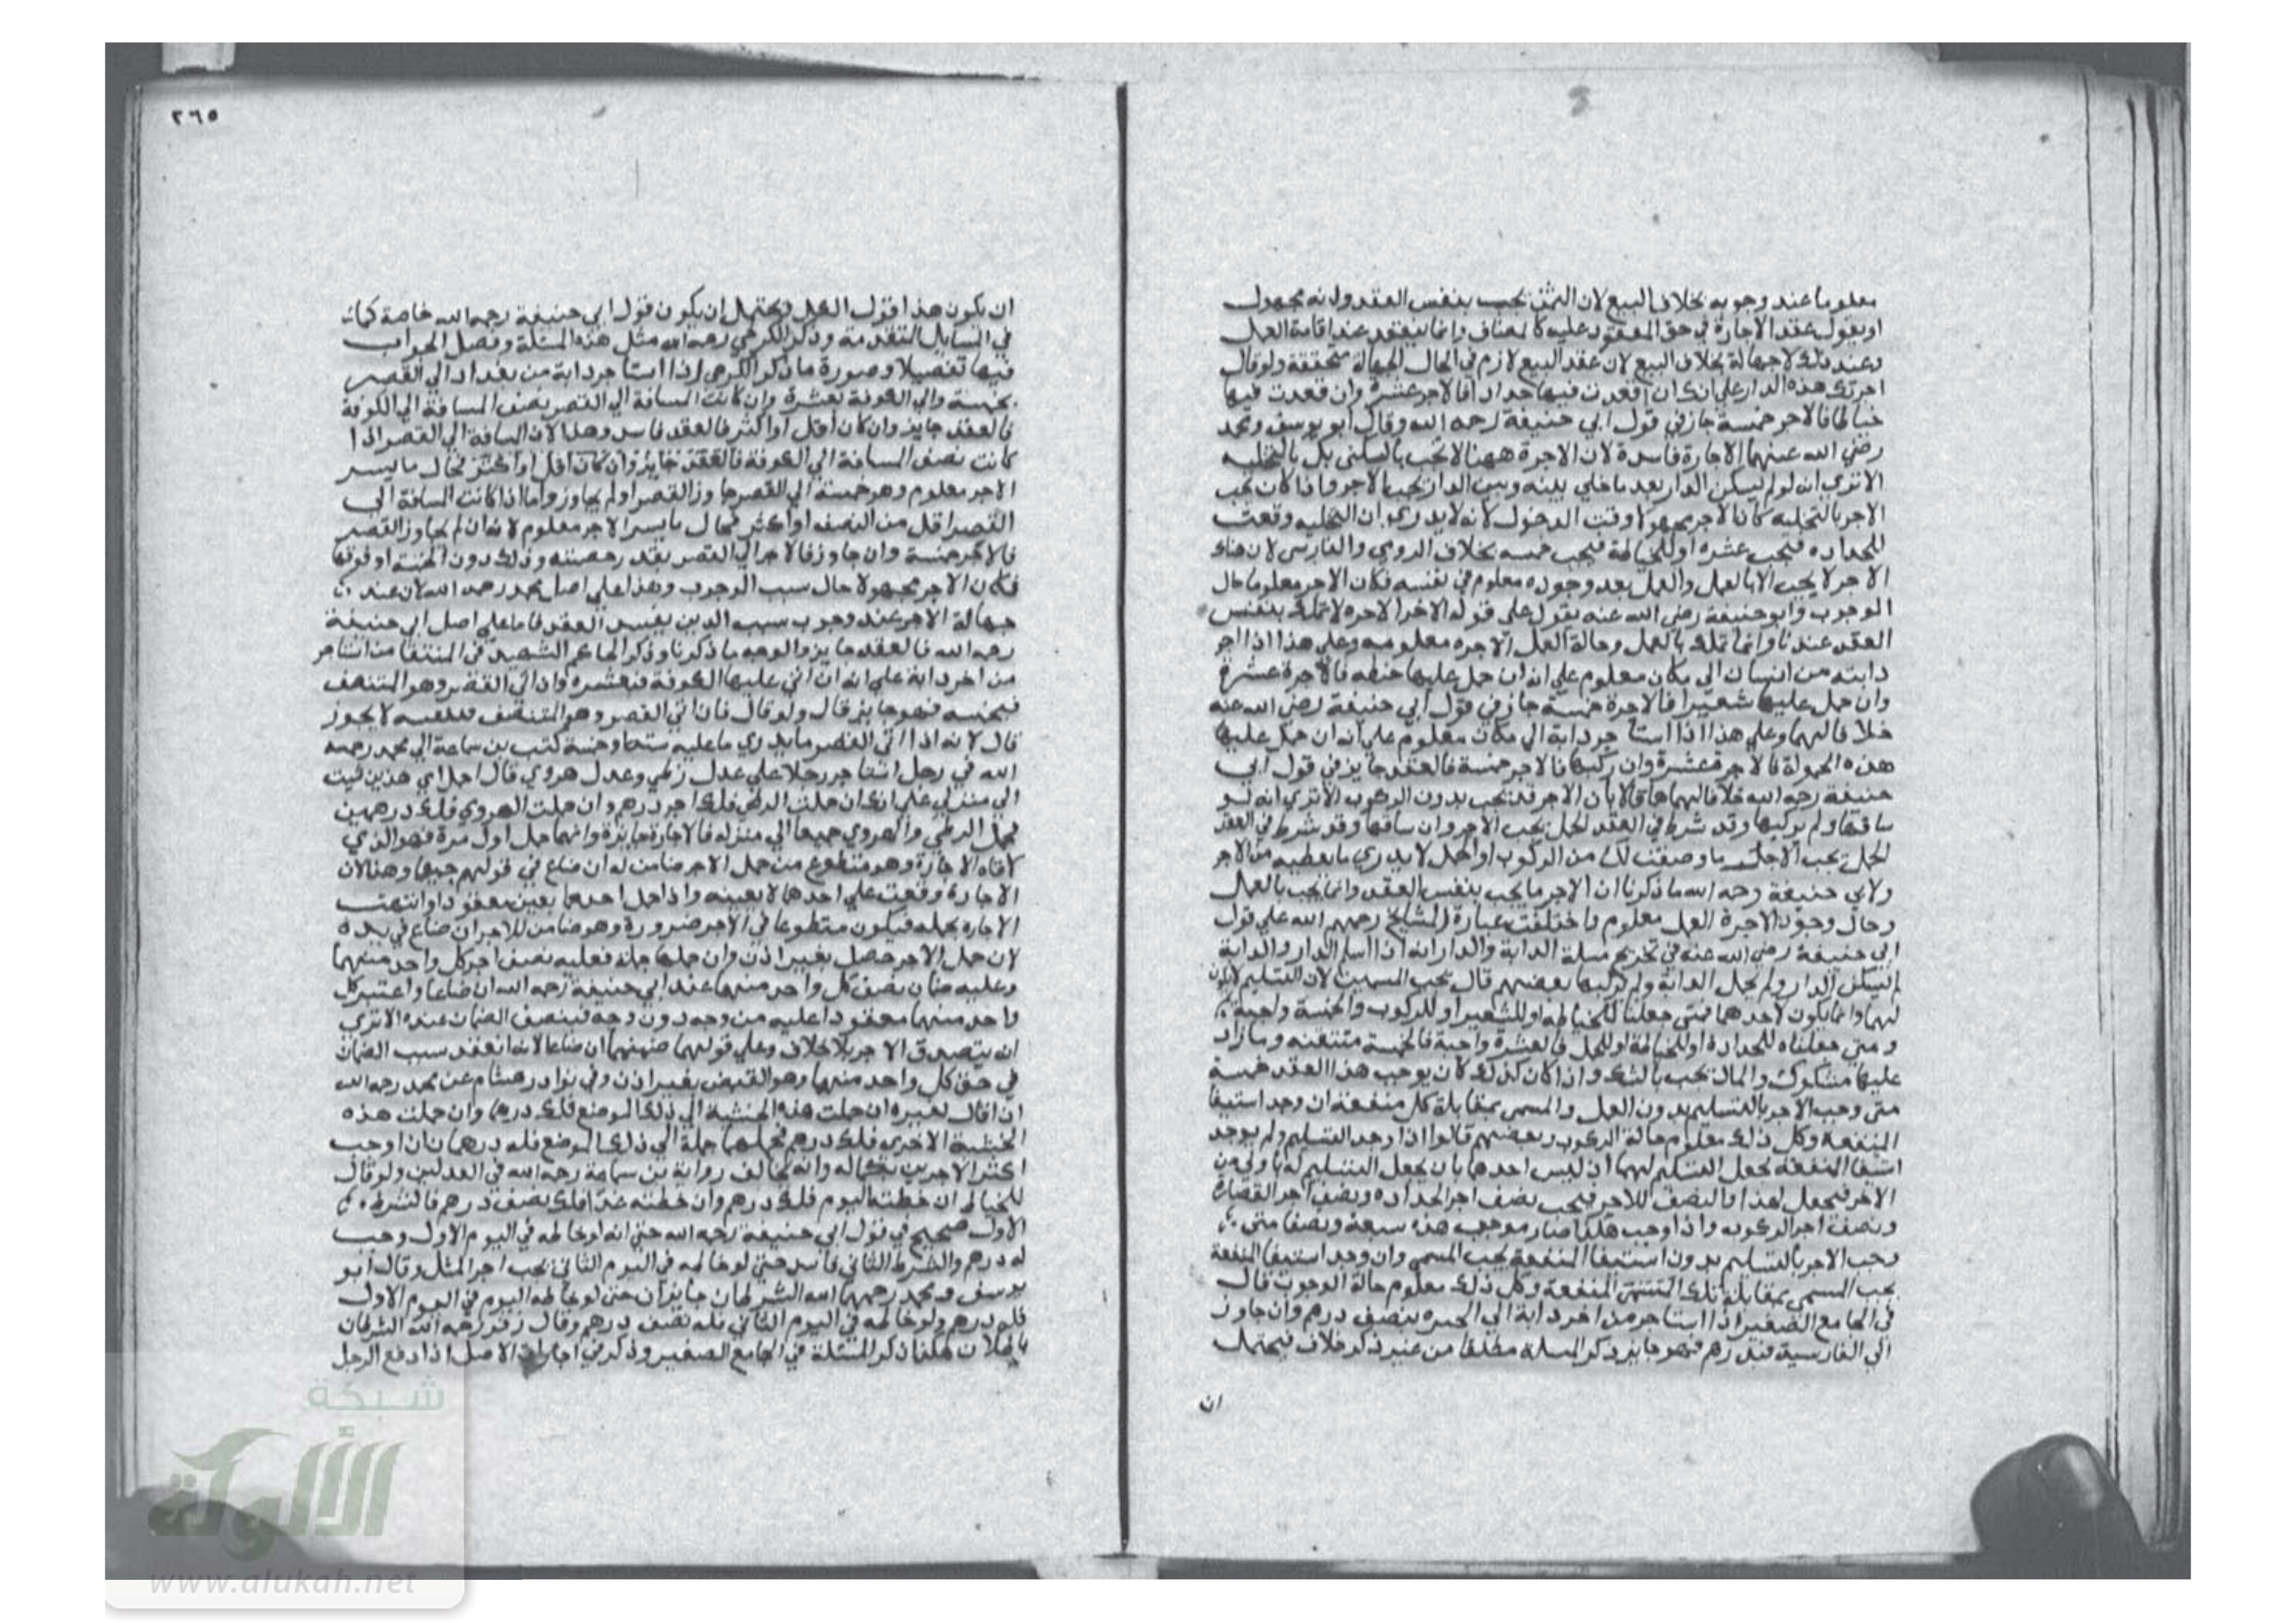 معلوما عند وجوبه بخلاف البيع لان الثمن يجب بنفس العقد وانه مجهول
او يقول عقد الاجارة في حق المعقود عليه كالمضاف وانما ينعقد عند اقامة العمل
وعند ذلك لا جهالة بخلاف البيع لان عقد البيع لازم في الحال الجهالة متحققة ولو قال
اجرتك هذه الدار على انك ان اقعدت فيها حدادا فالاجر عشرة وان قعدت فيها
خياطا فالاجر خمسة جاز في قول ابي حنيفة رحمه الله وقال ابو يوسف ومحمد
رضي الله عنهما الاجارة فاسدة لان الاجرة ههنا لا تجب بالسكنى بل بالتخليه
الا ترى انه لو لم يسكن الدار بعد ما خلي بينه وبين الدار يجب الاجر واذا كان يجب
الاجر بالتخليه كان الاجر مجهولا وقت الدخول لانه لا يدري ان التخليه وقعت
للحداده فيجب عشره او للخياطة فيجب خمسه بخلاف الرومي والفارسي لان هناك
الاجر لا يجب الا بالعمل والعمل بعد وجوده معلوم في نفسه فكان الاجر معلوما حال
الوجوب وابو حنيفة رضي الله عنه يقول على قوله الاخر الاجره لا تملك بنفس
العقد عندنا وانما تملك بالعمل وحالة العمل الاجره معلومه وعلى هذا اذا اجر
دابته من انسان الى مكان معلوم على انه ان حمل عليها حنطه فالاجرة عشرة
وان حمل عليها شعيرا فالاجرة خمسة جاز في قول ابي حنيفة رضي الله عنه
خلافا لهما وعلى هذا اذا استاجر دابة الى مكان معلوم على انه ان حمل عليها
هذه الحمولة فالاجرة عشرة وان ركبها فالاجر خمسة فالعقد جايز في قول ابي
حنيفة رحمه الله خلافا لهما هما قالا بان الاجر قد يجب بدون الركوب الا ترى انه لو
ساقها ولم يركبها وقد شرط في العقد الحمل يجب الاجر وان ساقها وقد شرط في العقد
الحمل يجب الاجر وما وصفت لك من الركوب او الحمل لا يدري ما يعطيه من الاجر
ولابي حنيفة رحمه الله ما ذكرنا ان الاجر ما يجب بنفس العقد وانما يجب بالعمل
وحال وجود الاجرة العمل معلوم واختلفت عبارة المشايخ رحمهم الله على قول
ابي حنيفة رضي الله عنه في تخريج مسلة الدابة والدار انه اذا اسلم الدار والدابة
لم يسكن الدار ولم يحمل الدابة ولم يركبها بعضهم قال يجب المسمين لان التسليم
لهما وانما يكون لاحدهما فمتى جعلنا للخياطه او للشعير او للركوب والخمسة واجبة
ومتى جعلناه للحدادة او للحنطة او للحمل فالعشرة واجبة فالخمسة متيقنه وما زاد
عليها مشكوك والمال يجب بالشك واذا كان كذلك كان يوجب هذا العقد خمسة
متى وجب الاجر بالتسليم بدون العمل والمسمى بمقابلة كل منفعة ان وجد استيفا
المنفعة وكل ذلك معلوم حالة الركوب وبعضهم قالوا اذا وجد التسليم ولم يوجد
استيفا المنفعة يجعل التسليم لهما اذ ليس احدهما بان يجعل التسليم له باولى من
الاخر فيجعل لهذا والنصف للاخر فيجب نصف اجر الحداده ونصف اجر القصارة
ونصف اجر الركوب واذا وجب هكذا صار موجب هذه سبعة ونصفا متى
وجب الاجر بالتسليم بدون استيفا المنفعة يجب المسمى وان وجد استيفا المنفعة
يجب المسمى بمقابلة تلك المنفعة وكل ذلك معلوم حالة الوجوب قال
في الجامع الصغير اذا استاجر من اخر دابة الى الحيره بنصف درهم وان جاوز
الى القادسية فبدرهم فهو جايز ذكر المسلة مطلقا من غير ذكر خلاف فيحتمل
ان
٢٦٥
ان يكون هذا قول الكل ويحتمل ان يكون قول ابي حنيفة رحمه الله خاصة كما
في المسايل المتقدمة وذكر الكرخي رحمه الله مثل هذه المسئلة وفصل الجواب
فيها تفصيلا وصورة ما ذكر الكرخي اذا استاجر دابة من بغداد الى القصر
بخمسة والى الكوفة بعشرة وان كانت المسافة الى القصر نصف المسافة الى الكوفة
فالعقد جايز وان كان اقل او اكثر فالعقد فاسد وهذا لان المسافة الى القصر اذا
كانت نصف المسافة الى الكوفة فالعقد جايز وان كان اقل او اكثر فحال ما يسير
الاجر معلوم وهو خمسة الى القصر جاوز القصر او لم يجاوز واما اذا كانت المسافة الى
القصر اقل من النصف او اكثر فحال ما يسير الاجر معلوم لانه ان لم يجاوز القصر
فالاجر خمسة وان جاوز فالاجر الى القصر بقدر حصته وذلك دون الخمسة او فوقها
فكان الاجر مجهولا حال سبب الوجوب وهذا على اصل محمد رحمه الله لان عنده
جهالة الاجر عند وجوب سبب الدين يفسد العقد فاما على اصل ابي حنيفة
رحمه الله فالعقد جايز والوجه ما ذكرنا وذكر الحاكم الشهيد في المنتقا من استاجر
من اخر دابة على انه ان اتى عليها الكوفة فبعشره وان اتى القصر وهو المنتصف
فبخمسه فهو جايز قال ولو قال فان اتى القصر وهو المنتصف لا يجوز
قال لانه اذا اتى القصر ما يدري ما عليه ستة او خمسة كتب بن سماعة الى محمد رحمه
الله في رجل استاجر رجلا على عدل زطي وعدل هروي قال احمل اي هذين شيت
الى منزلي على انك ان حملت الزطي فلك اجر درهم وان حملت الهروي فلك درهمين
فحمل الزطي والهروي جميعا الى منزله فالاجارة جايزة وانهما حمل اول مرة فهو الذي
لاقاه الاجارة وهو متطوع من حمل الاخر ضامن له ان ضاع في قولهم جميعا وهذا لان
الاجارة وقعت على احدهما لا بعينه واذا حمل احدهما بعين معقودا وانتهت
الاجاره بحمله فيكون متطوعا في الاخر ضرورة وهو ضامن للاخر ان ضاع في يده
لان حمل الاخر حصل بغير اذن وان حملهما جملة فعليه نصف اجر كل واحد منهما
وعليه ضمان نصف كل واحد منهما عند ابي حنيفة رحمه الله ان ضاعا واعتبر كل
واحد منهما معقودا عليه من وجه دون وجه فينصف الضمان عنده الا ترى
انه يتصدق الاجر بلا خلاف وعلى قولهما ضمنهما ان ضاعا لانه انعقد سبب الضمان
في حق كل واحد منهما وهو القبض بغير اذن وفي نوادر هشام عن محمد رحمه الله
اذا قال لغيره ان حملت هذه الخشبة الى ذلك الموضع فلك درهم وان حملت هذه
الخشبة الاخرى فلك درهم فحملهما جملة الى ذلك الموضع فله درهمان اوجب
اكثر الاجرين بكماله وانه يخالف رواية بن سماعة رحمه الله في العدلين ولو قال
للخياط ان خطته اليوم فلك درهم وان خطته غدا فلك نصف درهم فالشرط
الاول صحيح في قول ابي حنيفة رحمه الله حتى انه لو خاطه في اليوم الاول وجب
له درهم والشرط الثاني فاسد حتى لو خاطه في اليوم الثاني يجب اجر المثل وقال ابو
يوسف ومحمد رحمهما الله الشرطان جايزان حتى لو خاطه اليوم في اليوم الاول
فله درهم ولو خاطه في اليوم الثاني فله نصف درهم وقال زفر رحمه الله الشرطان
باطلان هكذا ذكر المسئلة في الجامع الصغير وذكر في اجارات الاصل اذا دفع الرجل
شبكة
الألوكة
www.alukah.net